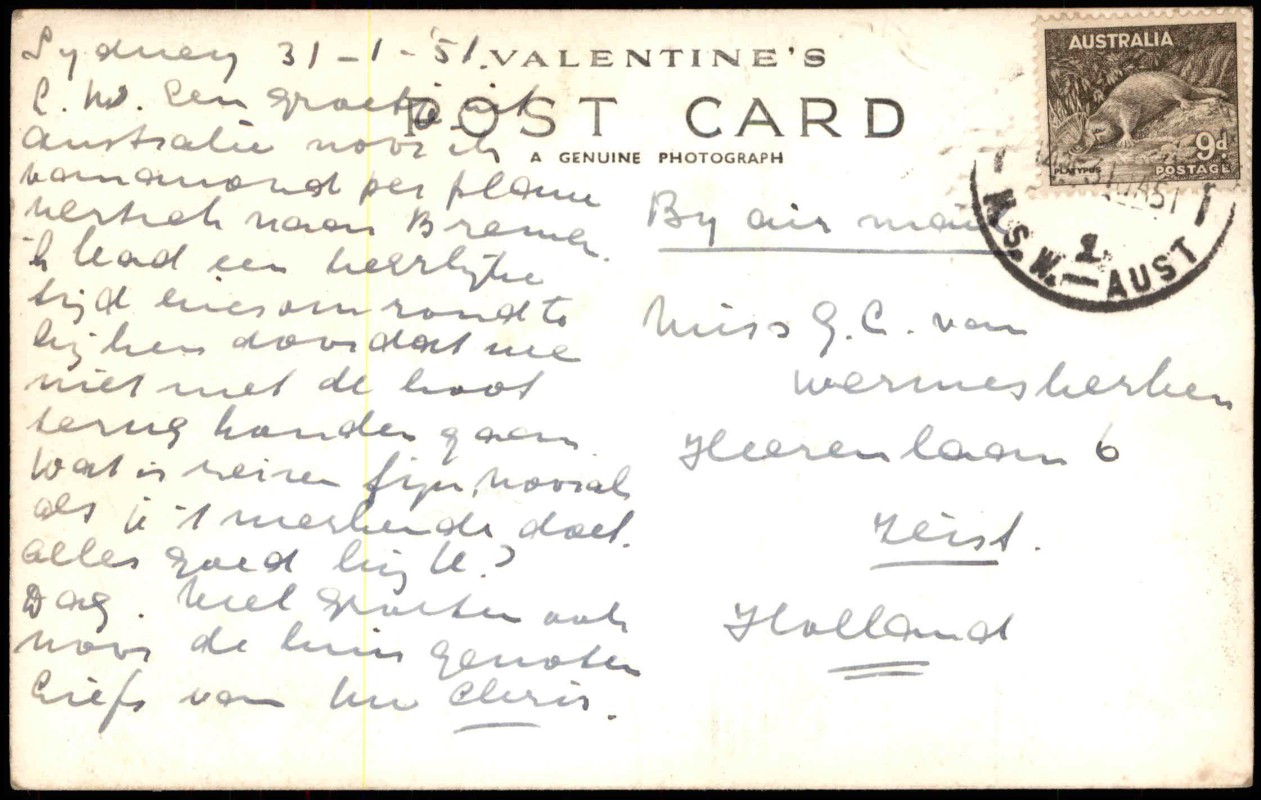 Sydney 31-1-'51.
L. W. Een groetje uit
Australie voor ik
vanavond per plane
vertrek naar Bremen.
'k Had een heerlijke
tijd hier om rond te
kijken doordat we
niet met de boot
terug konden gaan
Wat is reizen fijn, vooral
als je 't werkende doet.
Alles goed bij U?
Dag. Veel groeten ook
voor de huis genoten
Liefs van Uw Chris.
VALENTINE'S
POST CARD
A GENUINE PHOTOGRAPH
AUSTRALIA
9d.
PLATYPUS POSTAGE
31 JA 51
1
N.S.W.-AUST
By air mail
Miss G. C. van
Wermeskerken
Heerenlaan 6
Zeist.
Holland